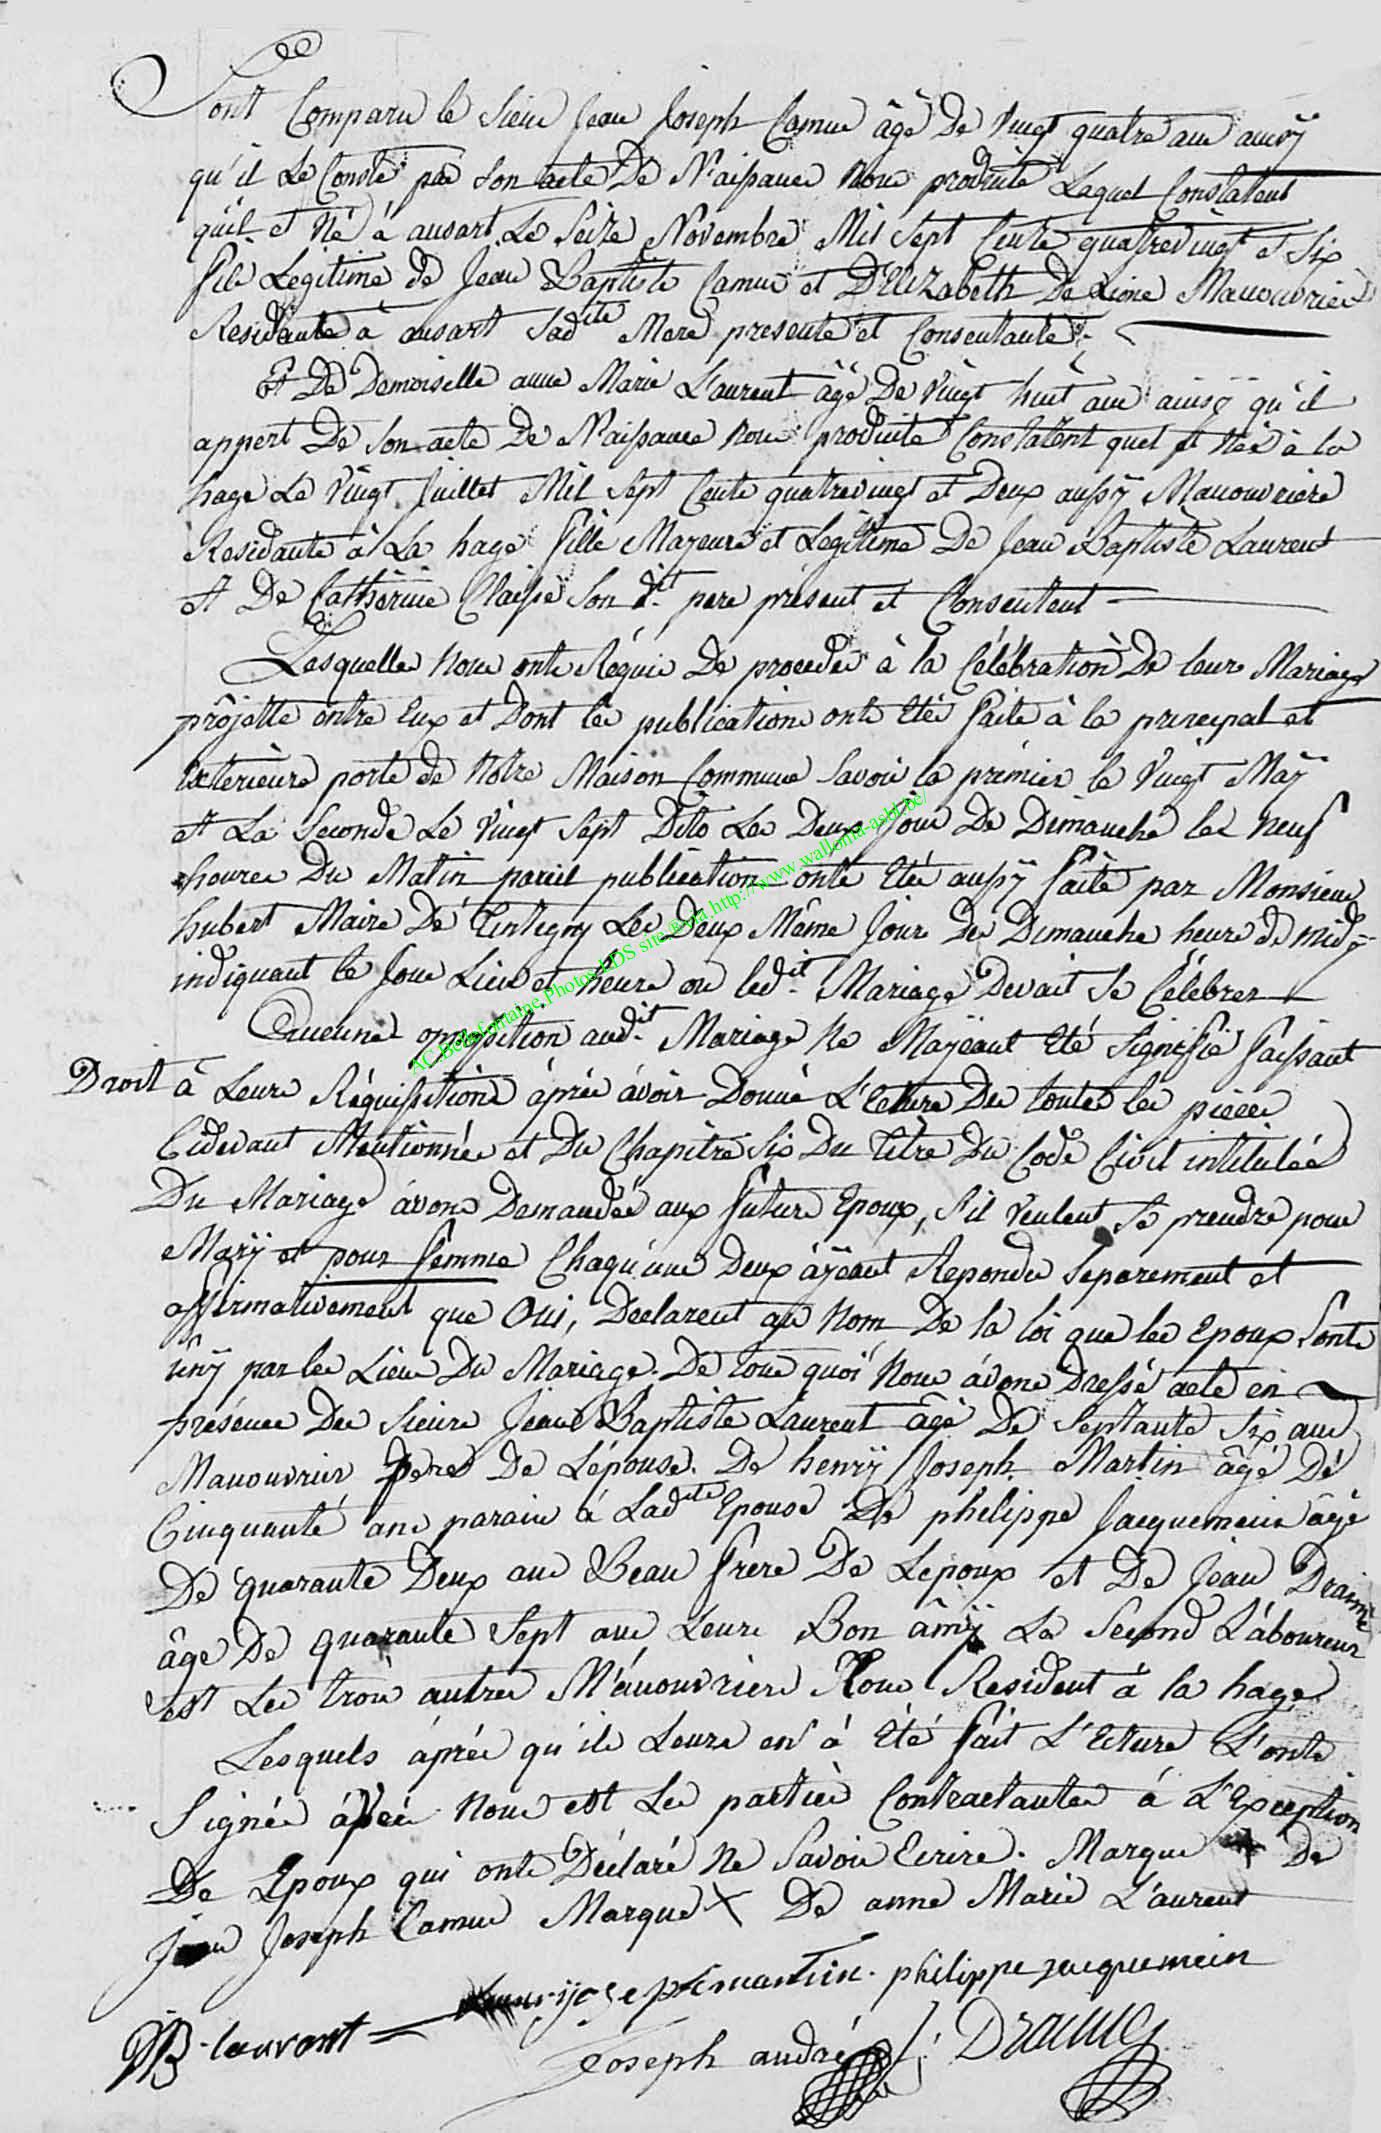 Sont Comparu le Sieur Jean Joseph Camus âgé De Vingt quatre ans ainsÿ
qu'il Le Conste par Son acte De Naissance Nous produite Lequel Constatent
quil et Né à ansart Le Seize Novembre Mil Sept Cente quatrevingt et Six
fils Legitime de Jean Baptiste Camus et D'Elizabeth De Lione Manouvrier
Residante à ansart Sadite Mere presente et Consentante
Et De Demoiselle anne Marie L'aurent âgé De Vingt huit ans ainsÿ qu'il
appert De Son acte De Naissance Nous produite Constatent quel et Née à la
hage Le Vingt Juillet Mil Sept Cente quatrevingt et Deux aussÿ Manouvriere
Residante à La hage fille Mayeure et Legitime De Jean Baptiste Laurent
et De Catherine Claisse Son dit pere présent et Consentent
Lesquelles Nous onts Réquis De proceder à la Célébration De leurs Mariage
prôjette entre Eux et Dont les publications onts Etés faite à la principal et
Extérieure porte de Notre Maison Commune Savoir la prémier le Vingt Maÿ
et La Seconde Le Vingt Sept Dito Les Deux Jour De Dimanche les Neuf
heures Du Matin pareil publication onts Etés aussÿ faite par Monsieur
hubert Maire De Tintigny Les Deux Même Jour De Dimanche heure de midÿ
indiquant le Jour Lieu et heure ou ledit Mariage Devait Se Célébrer
Aucune opposition audit Mariage Ne Mayéant Eté Signifié faissant
Droit à Leurs Réquissitions âprés âvoir Donné L'Ecture De toutes les pieces
Cidevant Mentionnés et Du Chapitre Six Du Titre Du Code Civil intitulée
Du Mariage âvons Demandés aux futurs Epoux, S'il Veulent Se prendre pour
Marÿ et pour femme Chaqu'une Deux âÿéant Repondu Separement et
affirmativement que Oui, Declarent au Nom De la loi que les Epoux Sonts
unÿ par les Liens Du Mariage. De tous quoi Nous âvons Dressé acte en
présence Des Sieurs Jean Baptiste Laurent âgé De Septante Six ans
Manouvrier Pere De Lépouse. De henrÿ Joseph Martin âgé De
Cinquanté ans parain à Ladite Epouse De philippe Jacquemin âgé
De quarante Deux ans Beau frere De Lepoux et De Jean Draime
âge De quarante Sept ans Leurs Bon âmÿ Le Second L'âboureur
est Les trois autres M'anouvriers Tous Resident à la hage
Lesquels âprés qu'ils Leurs en â Eté fait L'Ecture L'onts
Signés Nous est Les parties Contractantes à L'Exception
De Epoux qui onts Déclaré Ne Savoir Ecrire. Marque + De
Jean Joseph Camus Marque X De anne Marie L'aurent
henrij Joseph martin. philippe jacquemein
JB. laurant
Joseph andré J: Draime
AC.Bellefontaine.Photos LDS site ®via http://www.walloma-asbl.be/